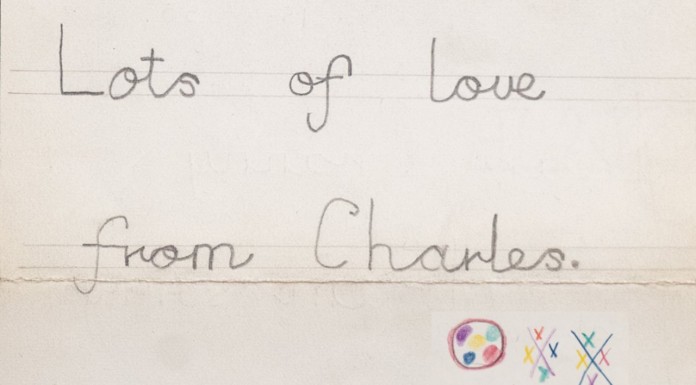 Lots of love
from Charles.